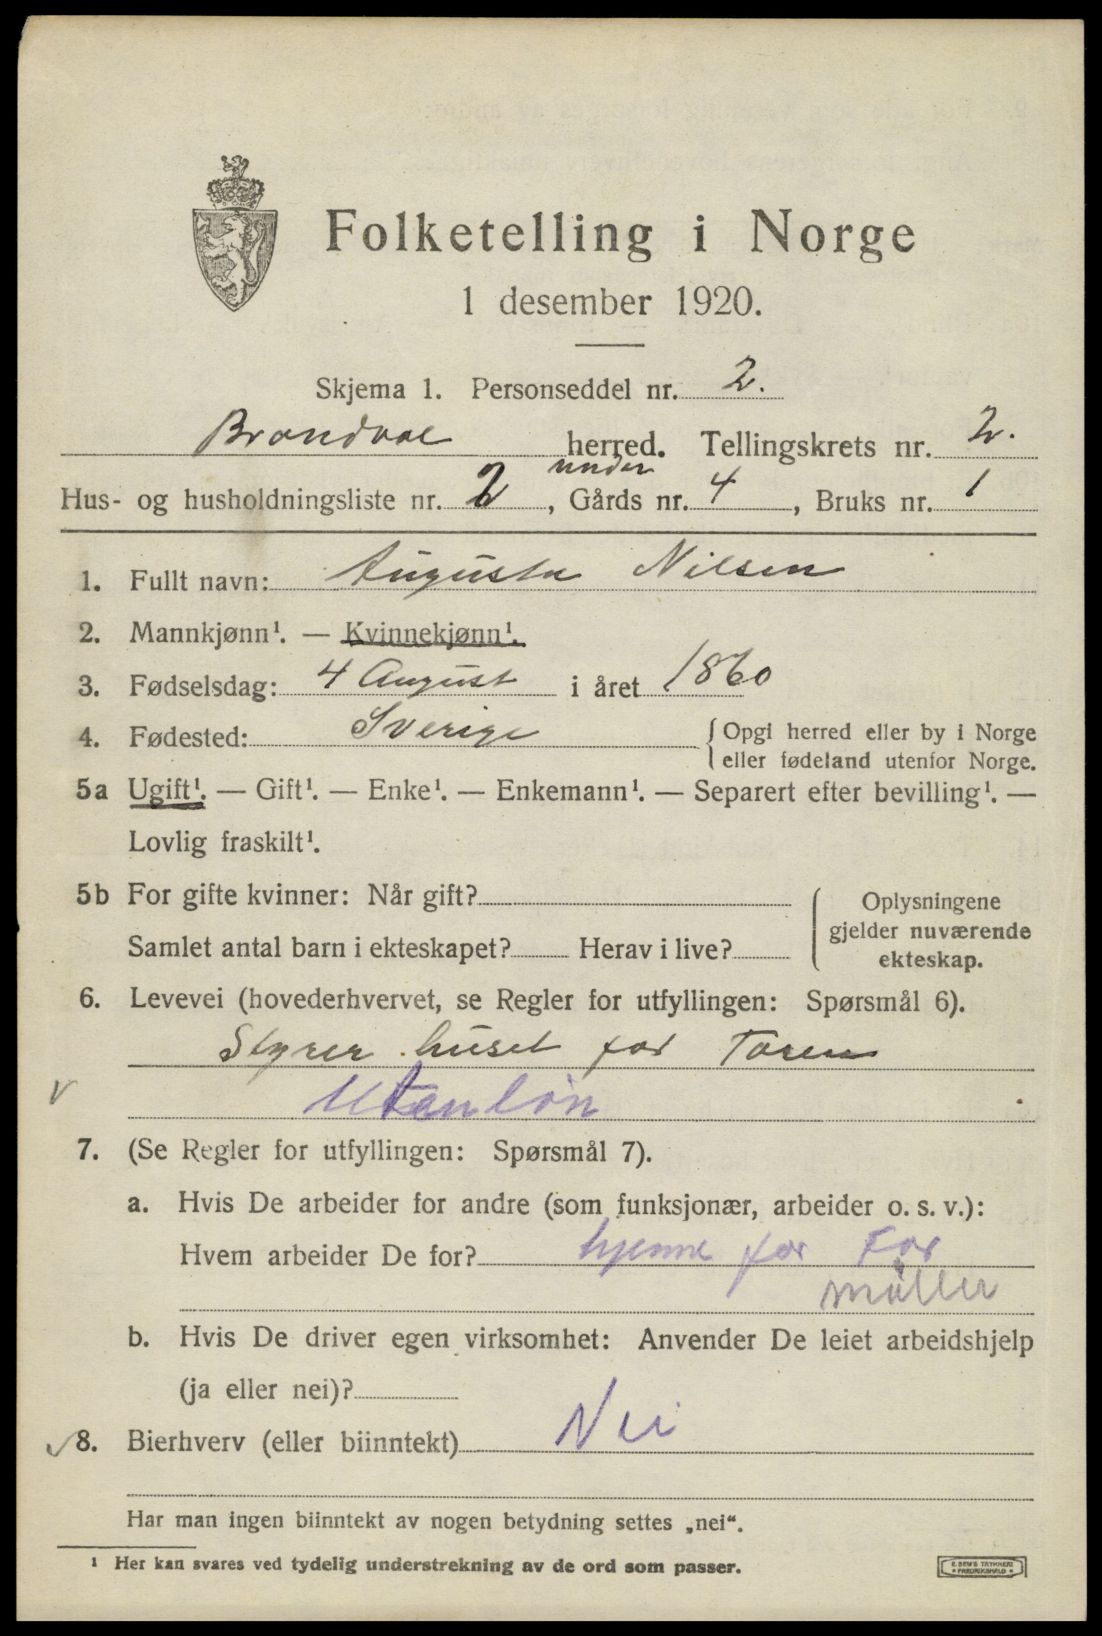 Folketelling i Norge
1 desember 1920.
Skjema 1. Personseddel nr. 2.
Brandval herred. Tellingskrets nr. 2.
under
Hus- og husholdningsliste nr. 2, Gårds nr. 4, Bruks nr. 1
1. Fullt navn: Augusta Nilsen
2. Mannkjønn¹. — Kvinnekjønn¹.
3. Fødselsdag: 4 August i året 1860
4. Fødested: Sverige { Opgi herred eller by i Norge
eller fødeland utenfor Norge.
5a Ugift¹. — Gift¹. — Enke¹. — Enkemann¹. — Separert efter bevilling¹. —
Lovlig fraskilt¹.
5b For gifte kvinner: Når gift?
Samlet antal barn i ekteskapet? Herav i live?
Oplysningene
gjelder nuværende
ekteskap.
6. Levevei (hovederhvervet, se Regler for utfyllingen: Spørsmål 6).
Styrer huset for Faren
Utan løn
7. (Se Regler for utfyllingen: Spørsmål 7).
a. Hvis De arbeider for andre (som funksjonær, arbeider o. s. v.):
Hvem arbeider De for? hjemme for Far
møller
b. Hvis De driver egen virksomhet: Anvender De leiet arbeidshjelp
(ja eller nei)?
8. Bierhverv (eller biinntekt) Nei
Har man ingen biinntekt av nogen betydning settes „nei“.
¹ Her kan svares ved tydelig understrekning av de ord som passer.
E. SEM'S TRYKKERI
FREDRIKSHALD